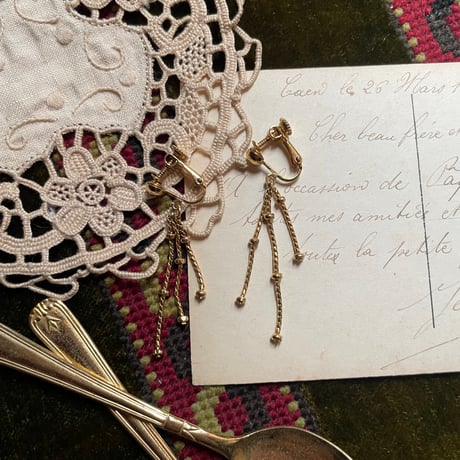 Caen le 26 Mars 1
Cher beau frère et
l'occassion de Pâq
tous mes amitiés et
toutes la petite